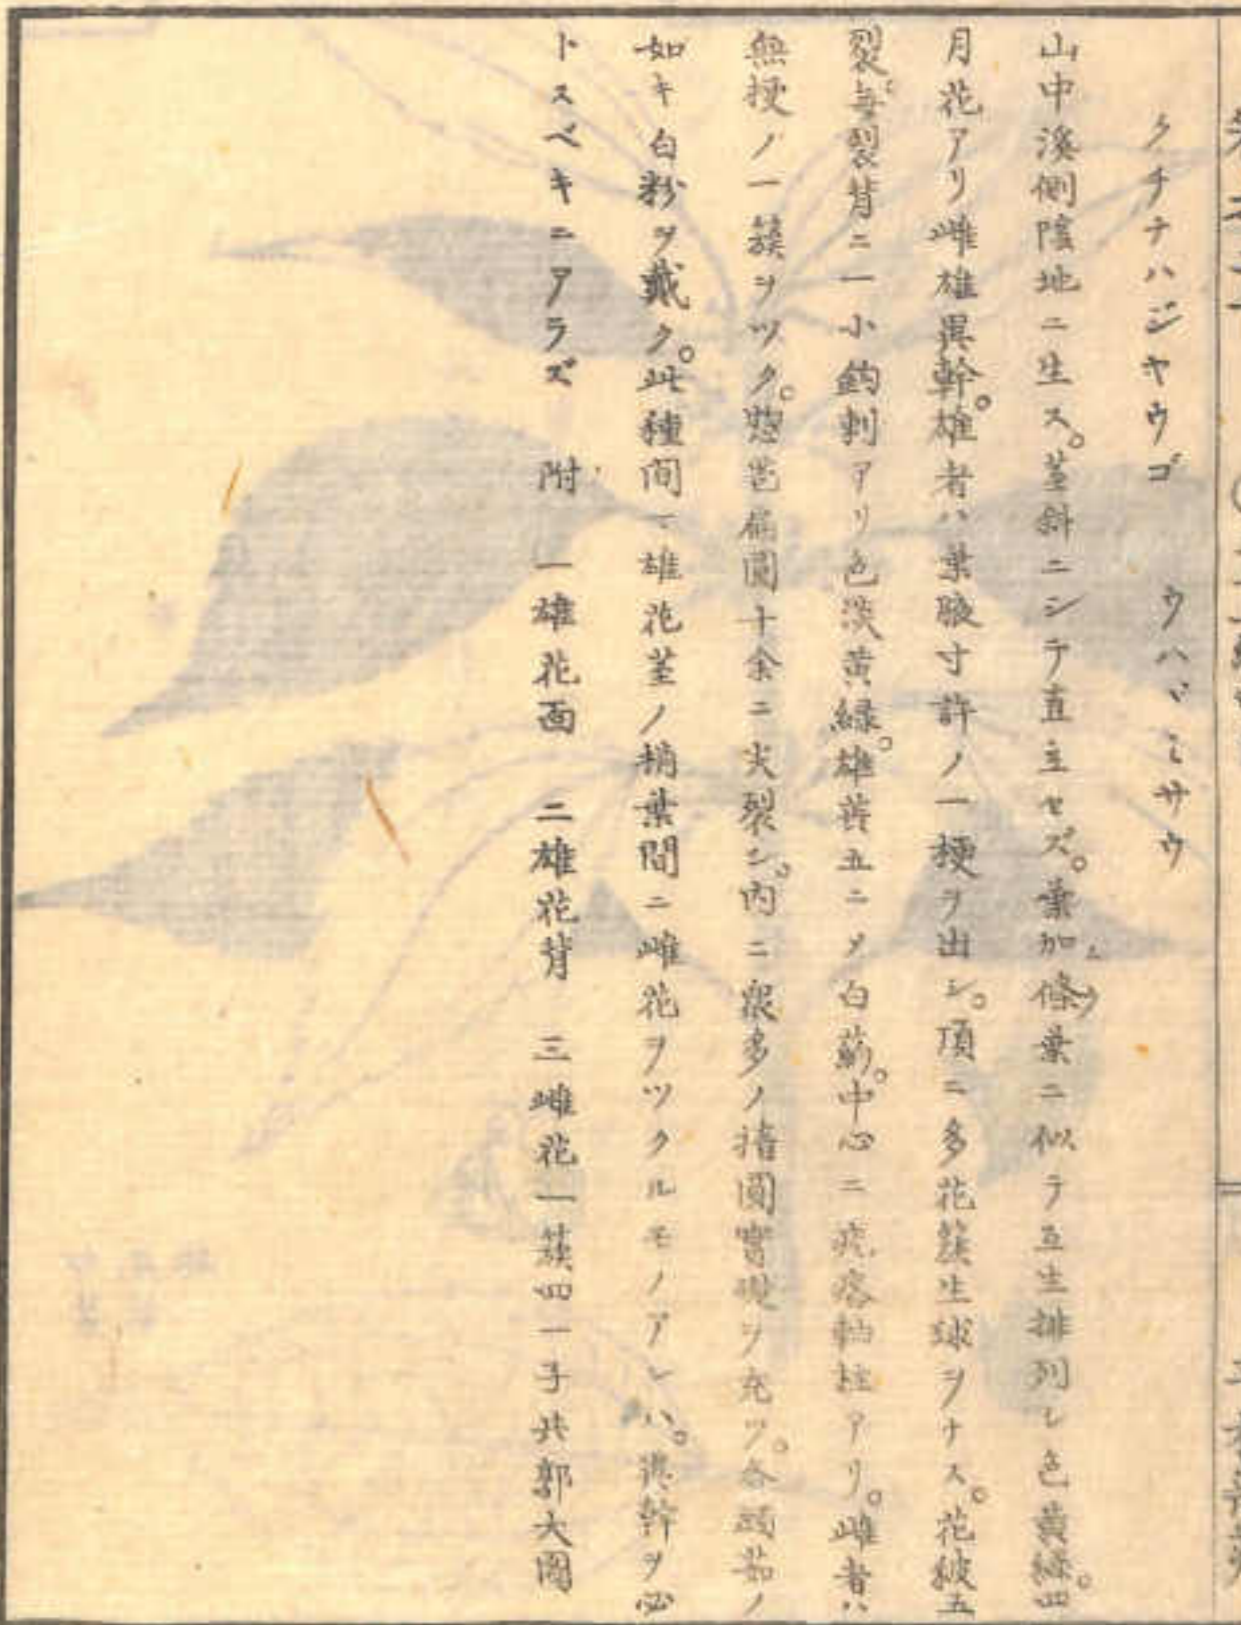 クチナハジヤウゴ　ウハヾミサウ
山中溪側陰地ニ生ス。莖斜ニシテ直立セズ。葉加條葉ニ似テ互生排列シ色黄緑。四
月花アリ雌雄異幹。雄者ハ葉腋寸許ノ一梗ヲ出シ。頂ニ多花簇生球ヲナス。花被五
裂毎裂背ニ一小鈎刺アリ色淡黄緑。雄蕋五ニメ白葯。中心ニ痕軸柱アリ。雌者ハ
無梗ノ一簇ヲツク。惣苞扁圓十余ニ尖裂シ。内ニ衆多ノ楕圓實礎ヲ充ツ。各頭茹ノ
如キ白粉ヲ戴ク。此種間々雄花莖ノ梢葉間ニ雌花ヲツクルモノアレハ。異幹ヲ必
トスベキニアラズ　附　一雄花面　二雄花背　三雌花一簇四一子共郭大圖